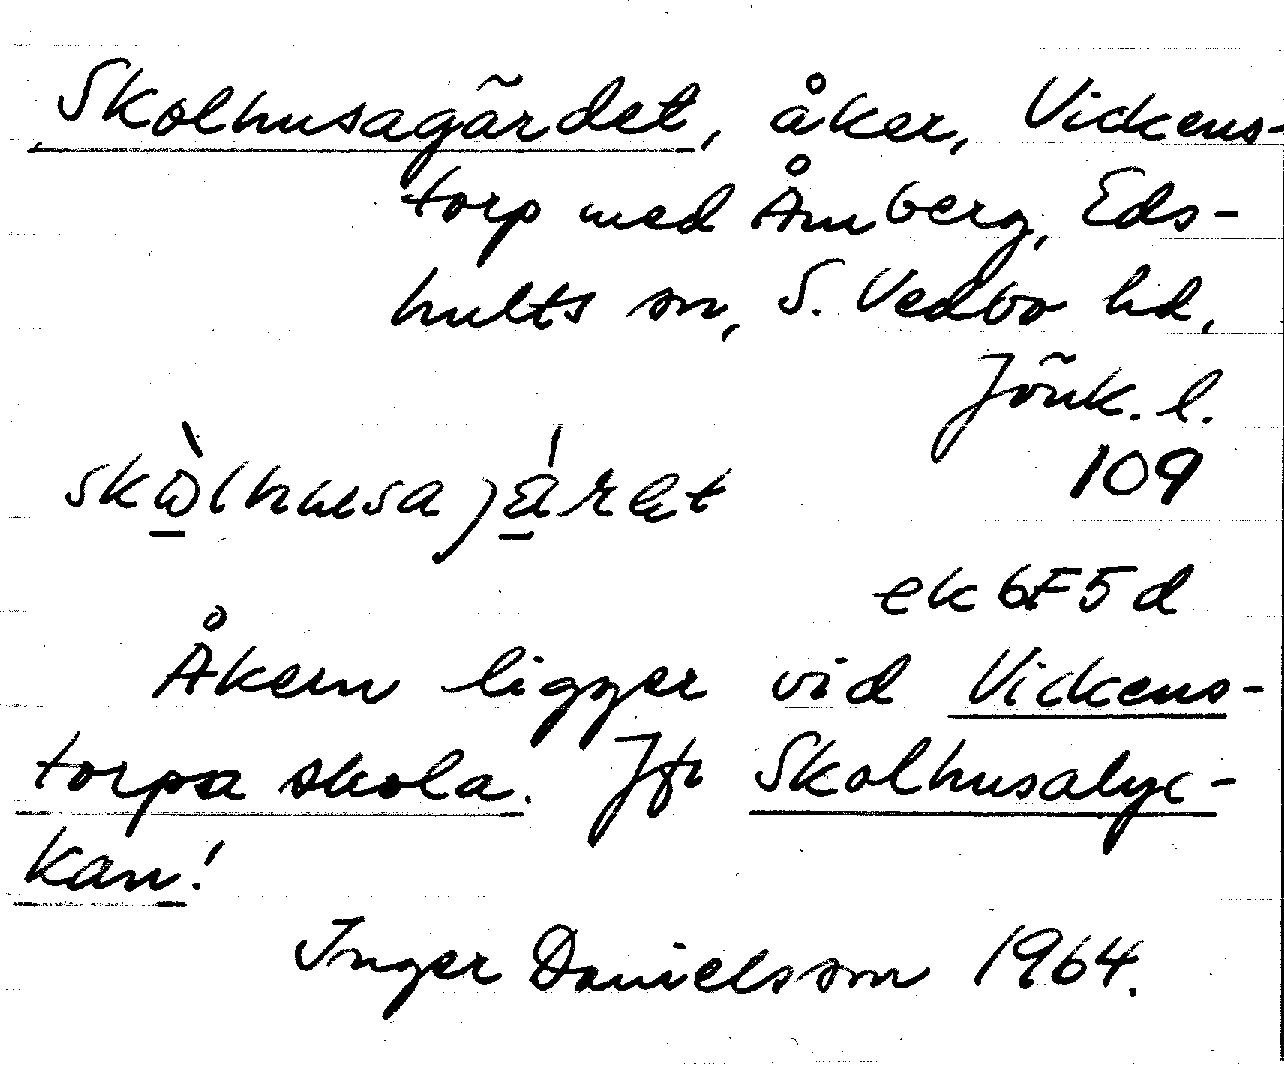 Skolhusagärdet, åker, Vickens-
torp med Åmberg, Eds-
hults sn, S. Vedbo hd,
Jönk. l.
109
ek 6F5d
Åkern ligger vid Vickens-
torpa skola. Jfr Skolhusalyc-
kan!
Inger Danielsson 1964.